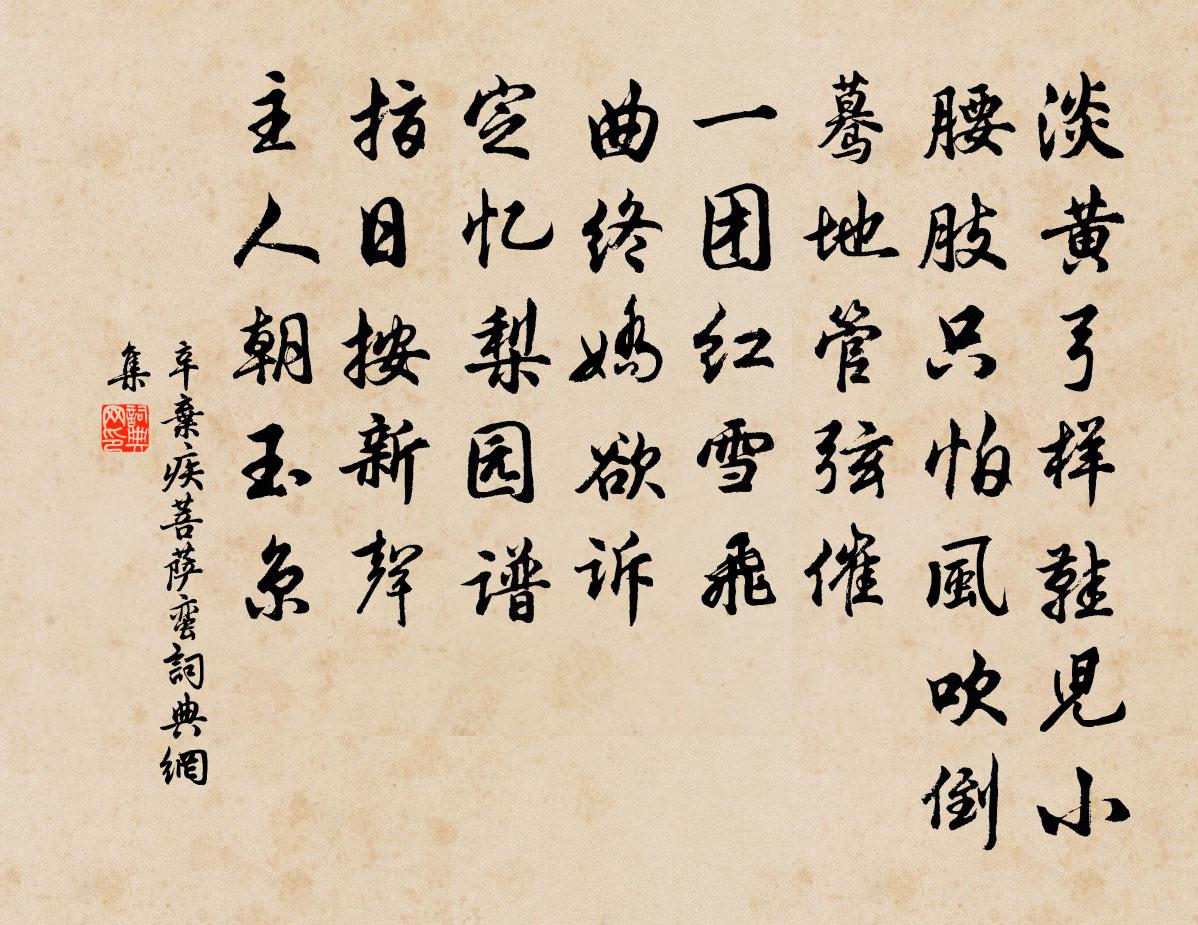 淡黄弓样鞋儿小
腰肢只怕風吹倒
蓦地管弦催
一团红雪飛
曲终娇欲诉
定忆梨园谱
指日按新聲
主人朝玉京
辛棄疾菩萨蛮詞典網
集
詞典网印